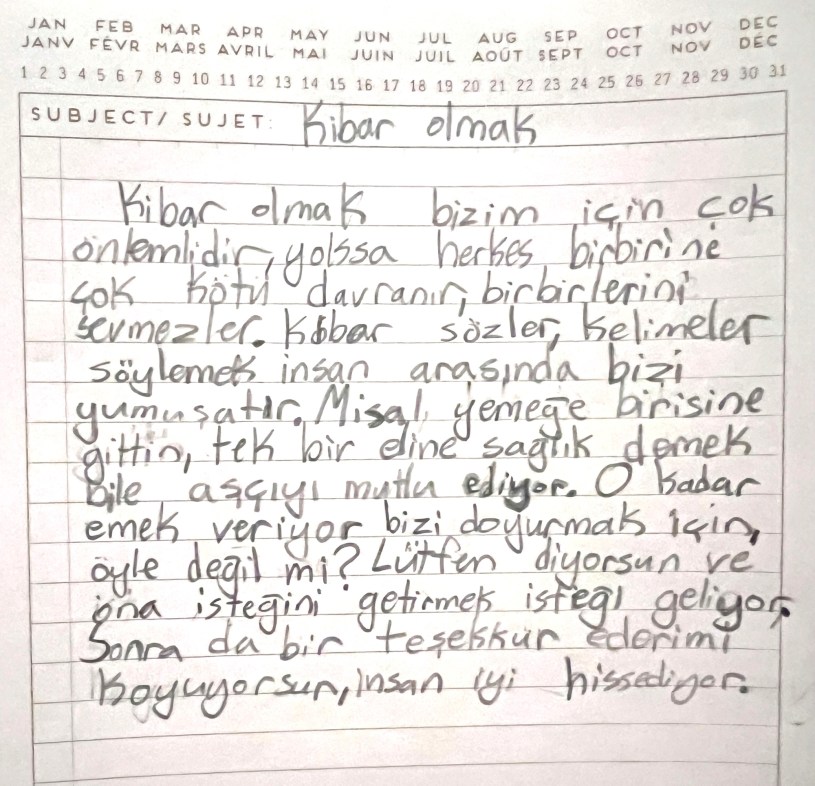 JAN FEB MAR APR MAY JUN JUL AUG SEP OCT NOV DEC
JANV FÉVR MARS AVRIL MAI JUIN JUIL AOÛT SEPT OCT NOV DÉC
1 2 3 4 5 6 7 8 9 10 11 12 13 14 15 16 17 18 19 20 21 22 23 24 25 26 27 28 29 30 31
SUBJECT/ SUJET: Kibar olmak
Kibar olmak bizim için çok
önlemlidir, yolssa herkes birbirine
çok kötü davranır, birbirlerini
sevmezler. Kibar sözler, kelimeler
söylemek insan arasında bizi
yumuşatır. Misal, yemeğe birisine
gittin, tek bir eline sağlık demek
bile aşçıyı mutlu ediyor. O kadar
emek veriyor bizi doyurmak için,
öyle değil mi? Lütfen diyorsun ve
ona isteğini getirmek isteği geliyor.
Sonra da bir teşekkür ederimi
koyuyorsun, insan iyi hissediyor.